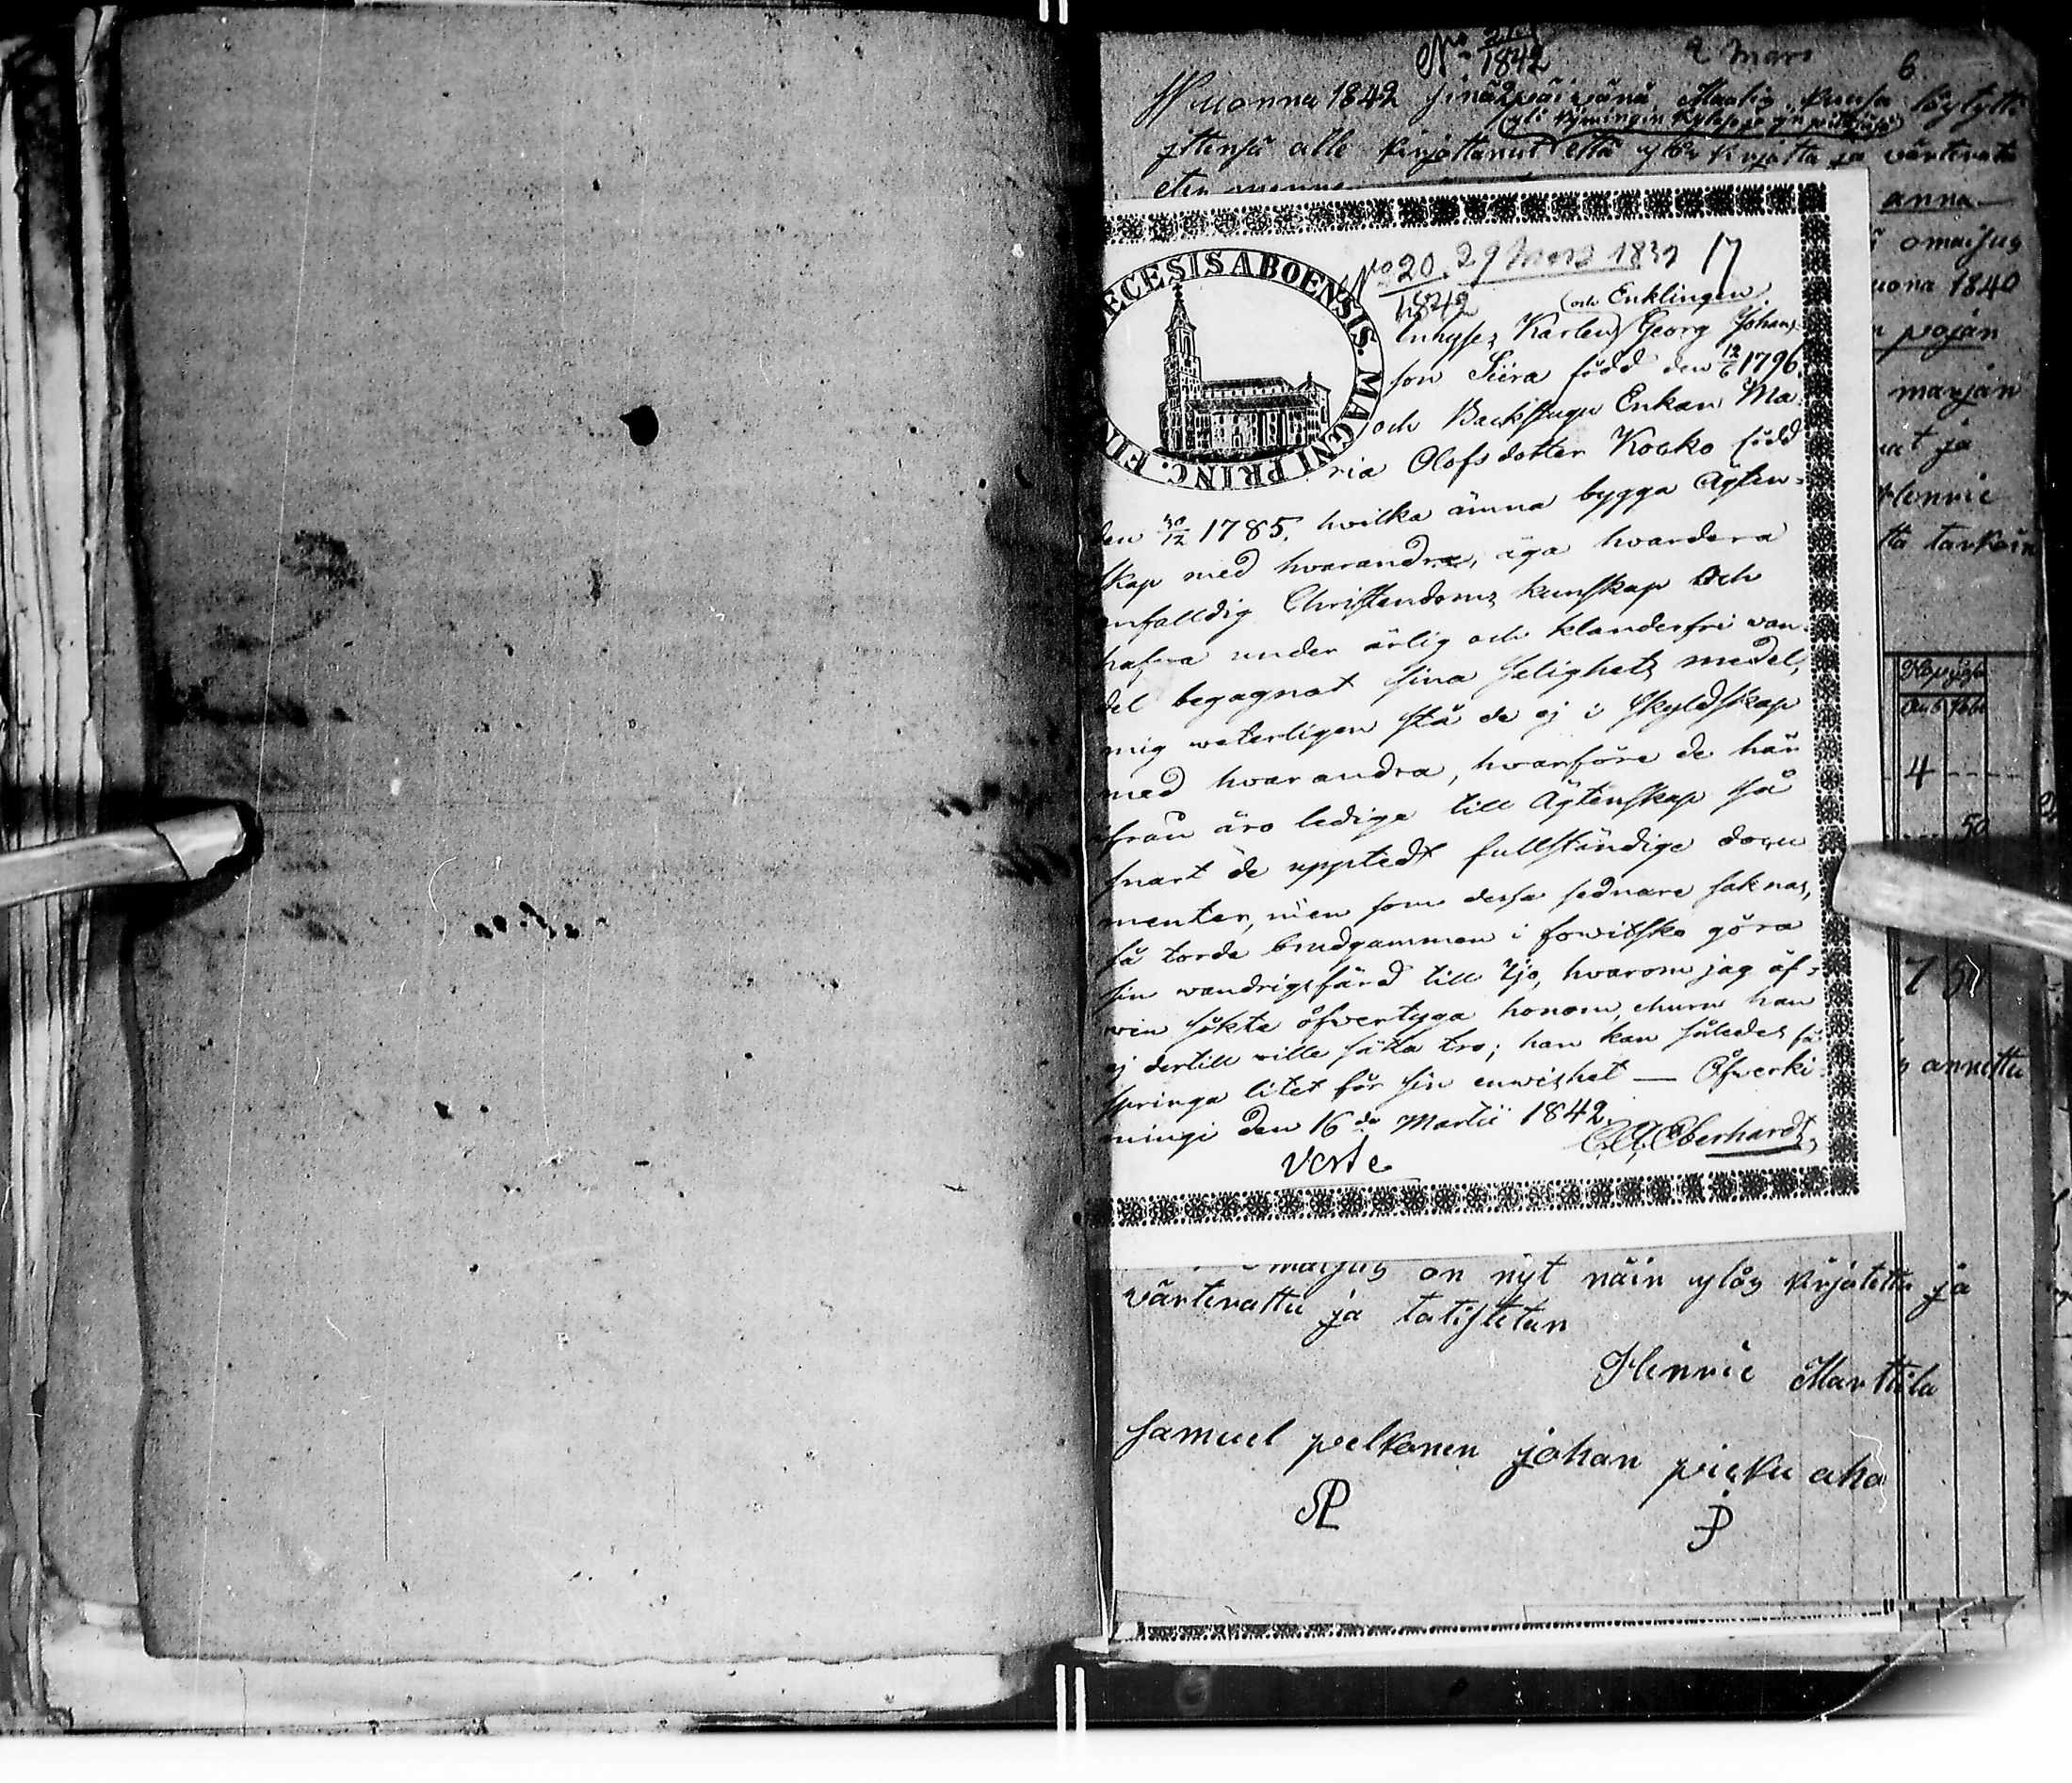 No 1842
2 Mars
6
Wuonna 1842 sinä 2 päivänä Maalis kuusa löytyti
yli kymingin kylässä
ittensä alle kirjottanut että ylös kirjotta ja värterata
anna
omaisus
uona 1840
pojan
marjan
ja
Henric
tarkoin
DIECESIS ABOENSIS. MAGNI PRINC. FIN
No 20. 29 Mars 1842 17
1842
(och Enklingen)
Inhyses Karlen Georg Johans
son Siira född den 12/6 1796.
och Backstugu Enkan Ma
ria Olofsdotter Kocko född
den 30/12 1785. hvilka ämna bygga Ägten=
skap med hvarandra, äga hvardera
enfalldig Christendoms kunskap och
hafva under ärlig och klanderfri van=
del begagnat sina salighets medel,
mig veterligen stå de ej i skyldskap
med hvarandra, hvarföre de här
ifrån äro lediga till Ägtenskap så
snart de upptedt fullständige docu
menter, men som dessa sednare saknas,
så torde brudgummen i fowitsko göra
sin vandrigsfärd till Ijo, hvarom jag äf=
ven sökte öfvertyga honom, ehuru han
ej dertill ville sätta tro; han kan således få
springa litet för sin envishet — Öfverki
mingi den 16de Martii 1842.
C. A. Eberhardt,
Verte
4
50
7 50
annettu
omaisus on nyt näin ylös kirjotettu ja
värterattu ja totistetun
Henric Marttila
Samuel pelkonen johan picku aho
SP
JP